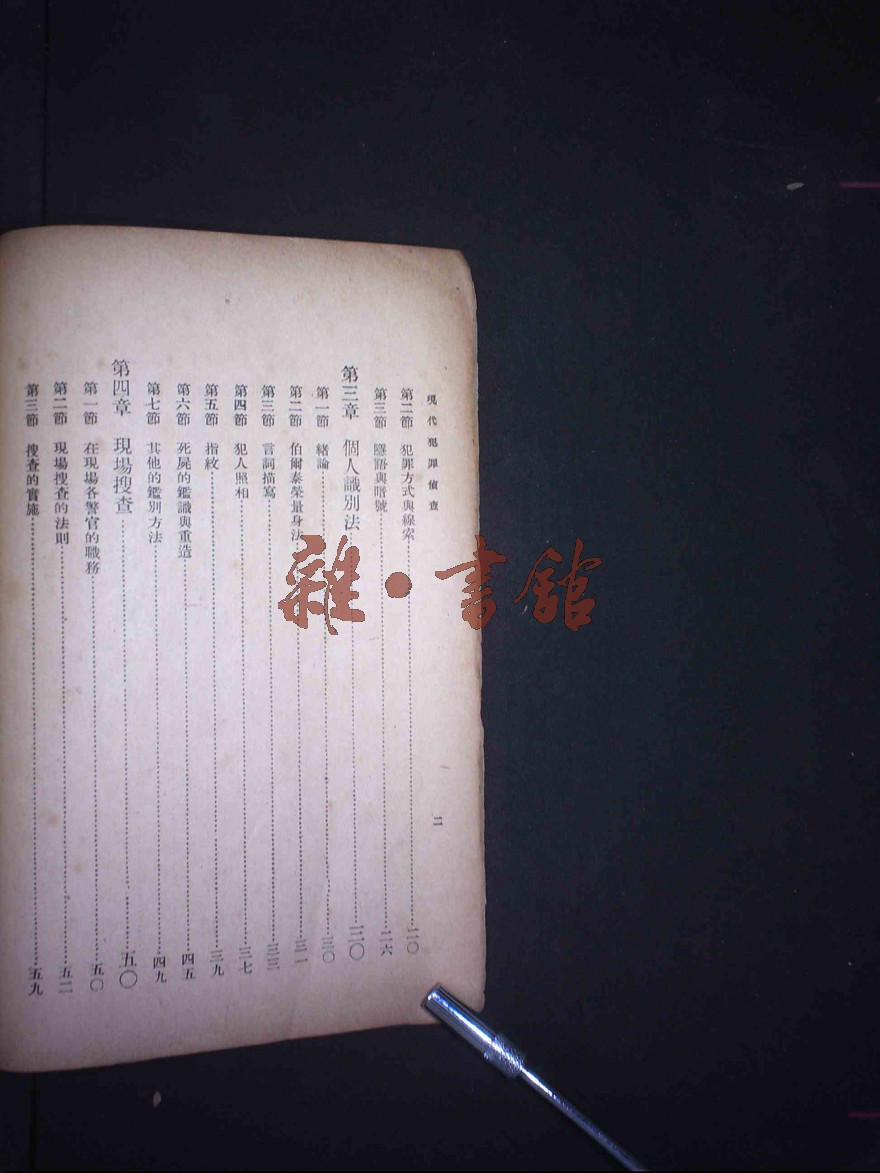 現代犯罪偵查
二
第二節 犯罪方式與線索 二〇
第三節 隱語與暗號 二六
第三章 個人識別法 三〇
第一節 緒論 三〇
第二節 伯爾泰榮量身法 三一
第三節 言詞描寫 三三
第四節 犯人照相 三七
第五節 指紋 三九
第六節 死屍的鑑識與重造 四五
第七節 其他的鑑別方法 四九
第四章 現場搜查 五〇
第一節 在現場各警官的職務 五〇
第二節 現場搜查的法則 五二
第三節 搜查的實施 五九
雜·書館